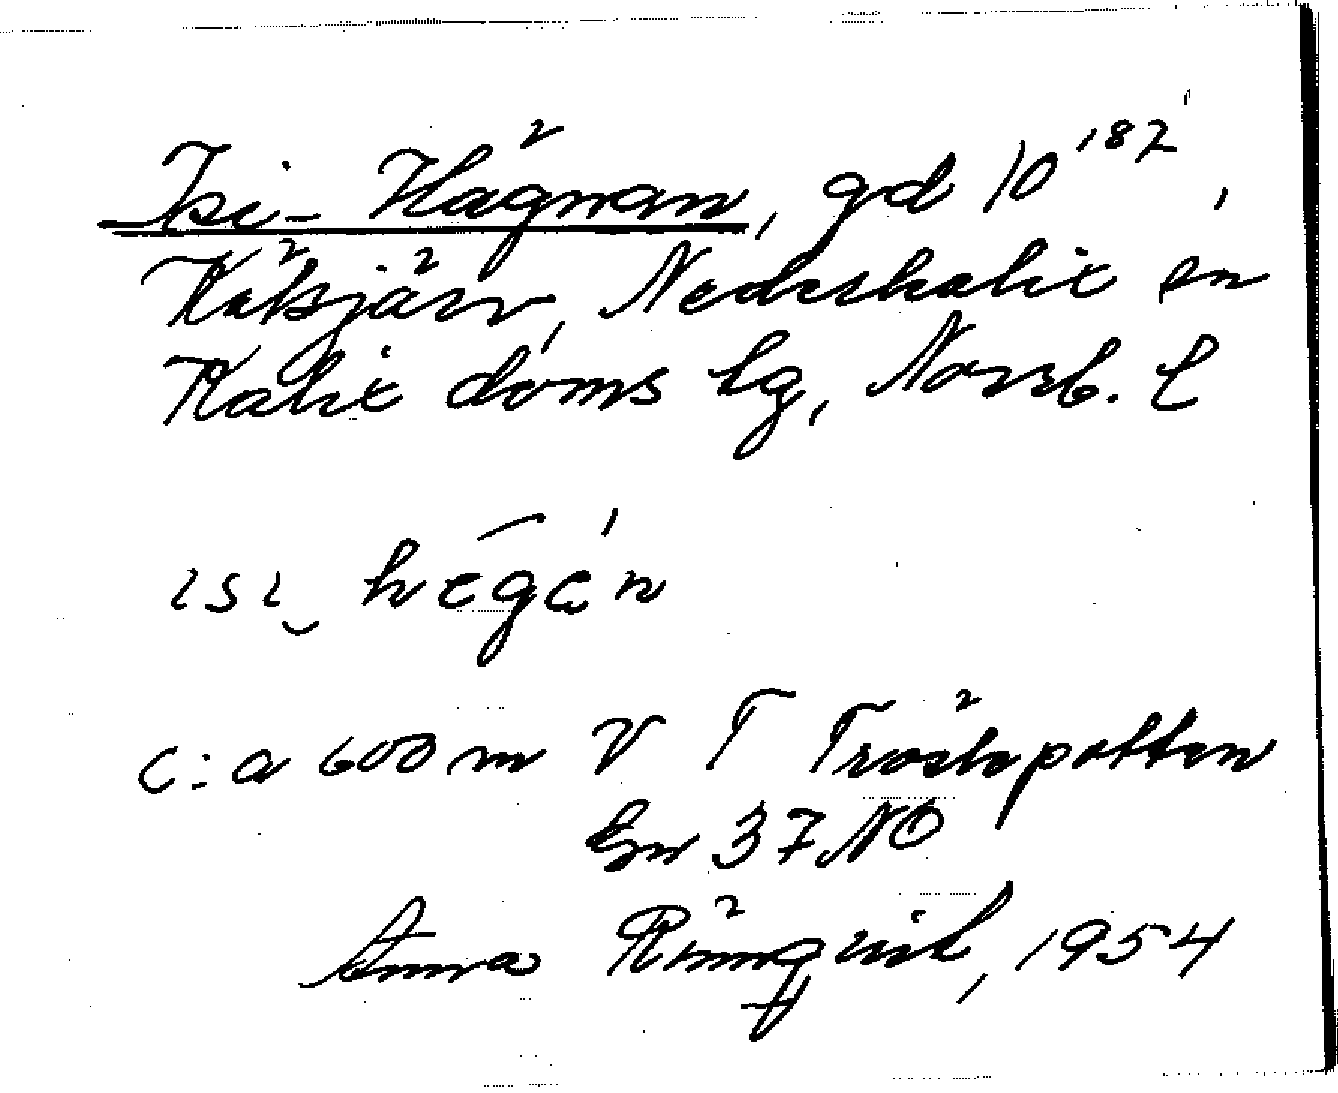 Isi-Hägnan, gd 10¹⁸²,
Kälsjärv, Nederkalix sn
Kalix doms lg, Norrb. l
ısı hēgá̇n
c:a 600 m V T Tröskpotten
Gn 37 NO
Anna Rönnqvist, 1954